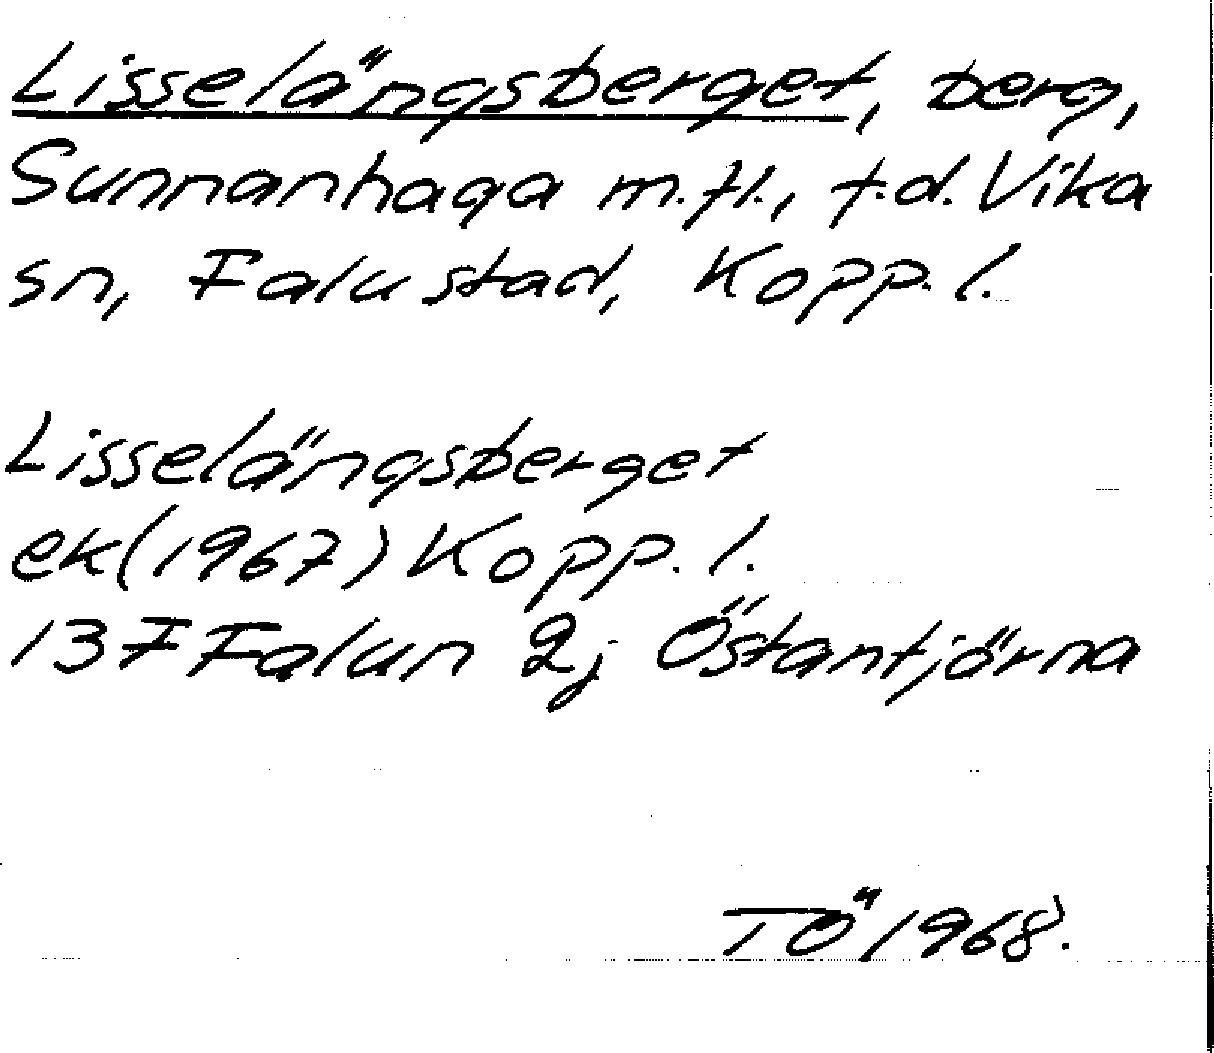 Lisselängsberget, berg,
Sunnanhaga m.fl., f.d. Vika
sn, Falu stad, Kopp. l.
Lisselängsberget
ek(1967) Kopp. l.
13F Falun 2j Östantjärna
TÖ 1968.